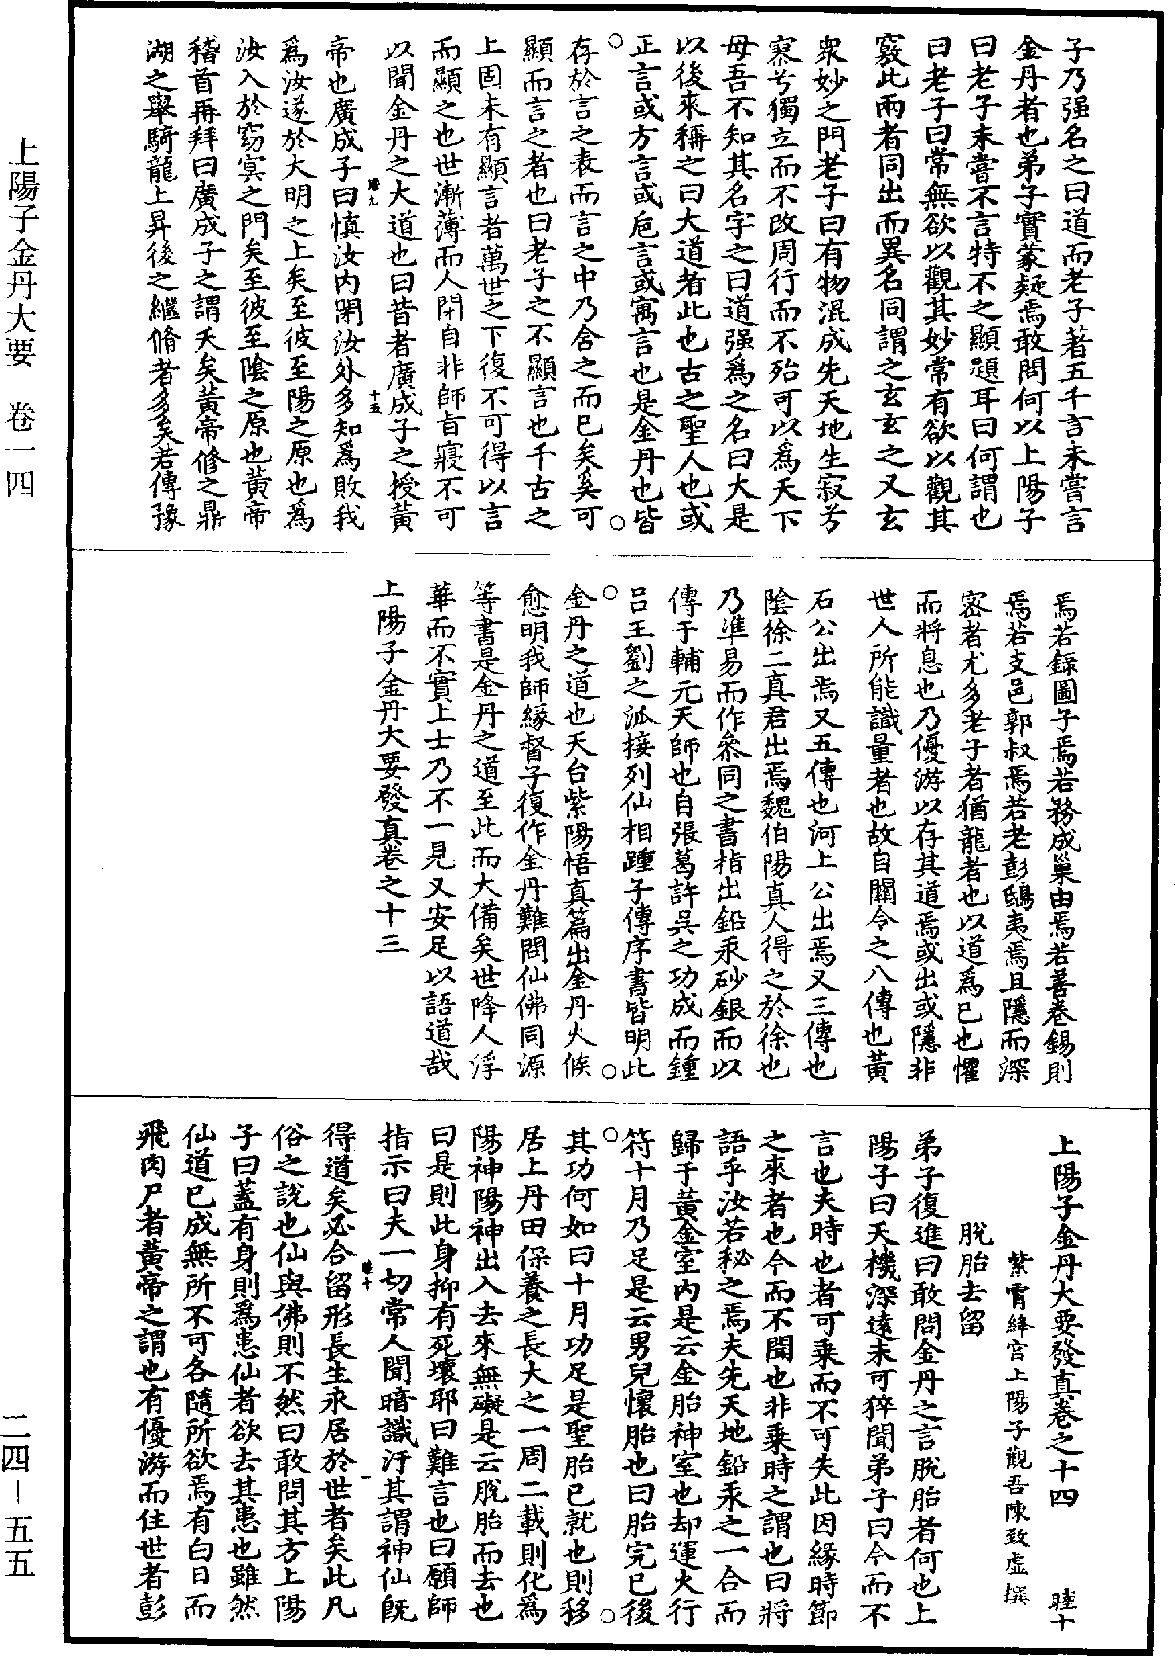 子乃强名之曰道而老子著五千言未嘗言
金丹者也弟子實蒙疑焉敢問何以上陽子
曰老子未嘗不言特不之顯題耳曰何謂也
曰老子曰常無欲以觀其妙常有欲以觀其
竅此兩者同出而異名同謂之玄玄之又玄
衆妙之門老子曰有物混成先天地生寂兮
寥兮獨立而不改周行而不殆可以爲天下
母吾不知其名字之曰道强爲之名曰大是
以後來稱之曰大道者此也古之聖人也或
正言或方言或卮言或寓言也是金丹也皆
存於言之表而言之中乃含之而已矣奚可
顯而言之者也曰老子之不顯言也千古之
上固未有顯言者萬世之下復不可得以言
而顯之也世漸薄而人閉自非師旨寢不可
以聞金丹之大道也曰昔者廣成子之授黃
帝也廣成子曰慎汝內閑汝外多知爲敗我
爲汝遂於大明之上矣至彼至陽之原也爲
汝入於窈冥之門矣至彼至陰之原也黃帝
稽首再拜曰廣成子之謂天矣黃帝修之鼎
湖之舉騎龍上昇後之繼脩者多矣若傳豫
焉若錄圖子焉若務成巢由焉若善卷錫則
焉若支邑郭叔焉若老彭鴟夷焉且隱而深
密者尤多老子者猶龍者也以道爲已也懼
而將息也乃優游以存其道焉或出或隱非
世人所能識量者也故自關令之八傳也黃
石公出焉又五傳也河上公出焉又三傳也
陰徐二真君出焉魏伯陽真人得之於徐也
乃準易而作叅同之書指出鉛汞砂銀而以
傳于輔元天師也自張葛許吳之功成而鍾
吕王劉之派接列仙相踵子傳序書皆明此
金丹之道也天台紫陽悟真篇出金丹火候
愈明我師緣督子復作金丹難問仙佛同源
等書是金丹之道至此而大備矣世降人浮
華而不實上士乃不一見又安足以語道哉
上陽子金丹大要發真卷之十三
上陽子金丹大要發真卷之十四 睦十
紫霄絳宮上陽子觀吾陳致虛撰
脫胎去留
弟子復進曰敢問金丹之言脫胎者何也上
陽子曰天機深遠未可猝聞弟子曰今而不
言也夫時也者可乗而不可失此因緣時節
之來者也今而不聞也非乗時之謂也曰將
語乎汝若秘之焉夫先天地鉛汞之一合而
歸于黃金室內是云金胎神室也却運火行
符十月乃足是云男兒懷胎也曰胎完已後
其功何如曰十月功足是聖胎已就也則移
居上丹田保養之長大之一周二載則化爲
陽神陽神出入去來無礙是云脫胎而去也
曰是則此身抑有死壞耶曰難言也曰願師
指示曰夫一切常人聞暗識汙其謂神仙旣
得道矣必合留形長生永居於世者矣此凡
俗之說也仙與佛則不然曰敢問其方上陽
子曰蓋有身則爲患仙者欲去其患也雖然
仙道已成無所不可各隨所欲焉有白日而
飛肉尸者黃帝之謂也有優游而住世者彭
上陽子金丹大要 卷一四
二四－五五